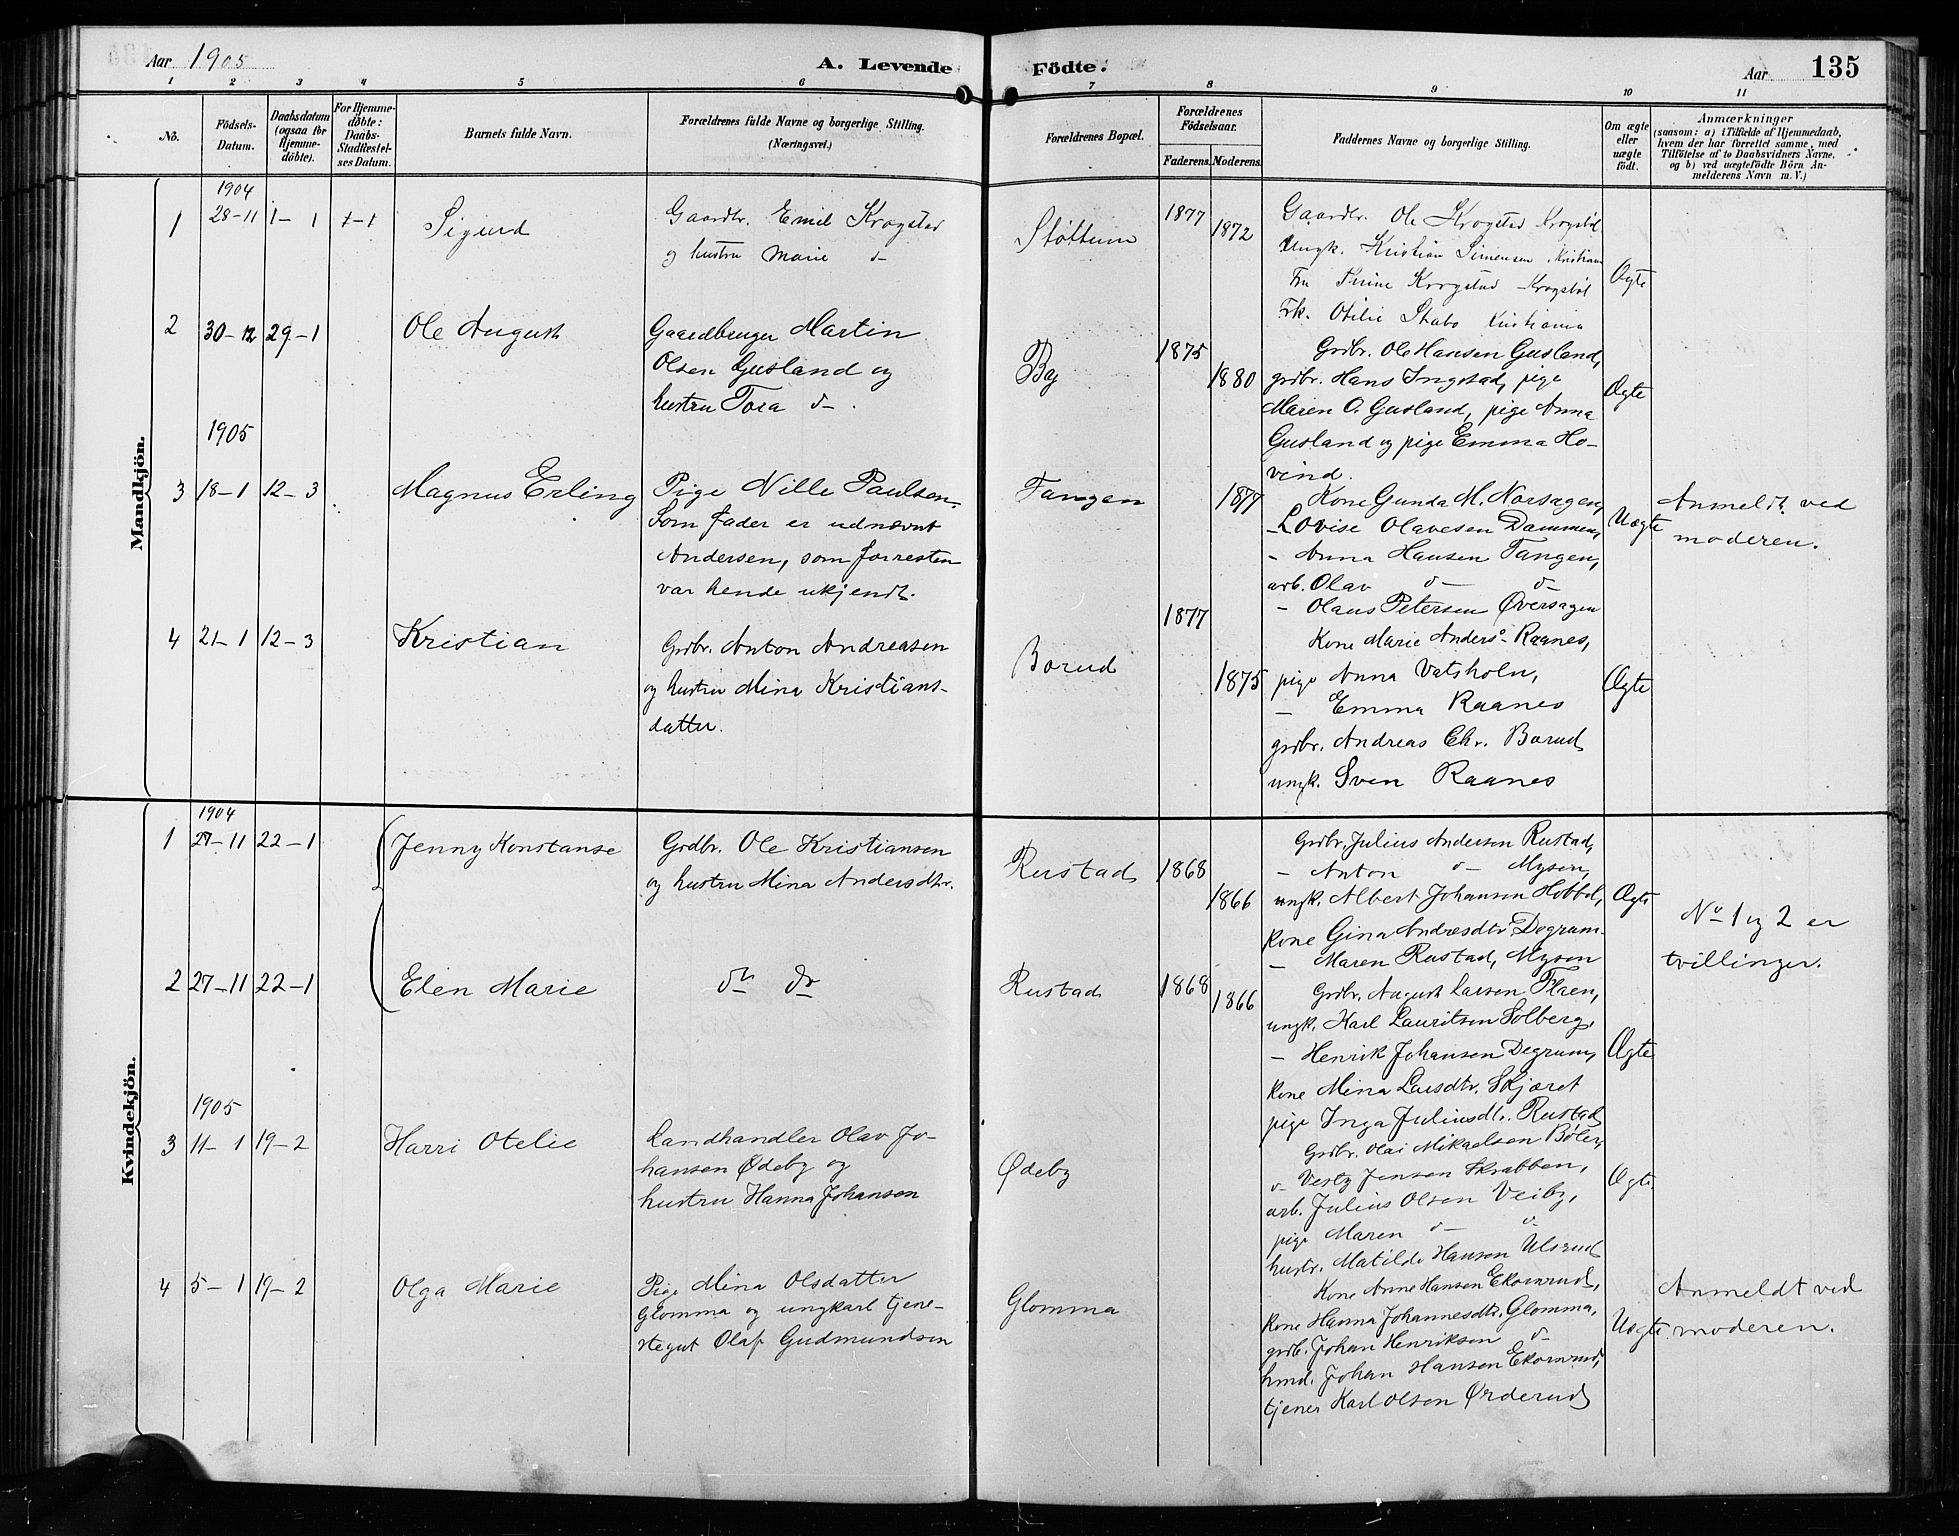 Aar 1905
A. Levende Födte.
Aar
135
1 2 3 4 5 6 7 8 9 10 11
No.
Födsels-Datum.
Daabsdatum (ogsaa for Hjemmedöbte).
For Hjemmedöbte: Daabs-Stadfestelses Datum.
Barnets fulde Navn.
Forældrenes fulde Navne og borgerlige Stilling. (Næringsvei.)
Forældrenes Bopæl.
Forældrenes Födselsaar.
Faderens. Moderens.
Faddernes Navne og borgerlige Stilling.
Om ægte eller uægte födt.
Anmærkninger
(saasom: a) i Tilfælde af Hjemmedaab, hvem der har forrettet samme, med Tilföielse af to Daabsvidners Navne, og b) ved uægtefödte Börn Anmelderens Navn m. V.)
Mandkjön.
1904
1 28-11 1-1 Sigurd
Gaardbr. Emil Krogstad
og hustru Marie d-
Støttum
1877
1872
Gaardbr. Ole Krogstad Krogsböl
Ungk. Kristian Simensen Kristiania
Fru Krogstad Krogsböl
Frk. Otilie Stabo Kristiania
Ægte
2 30-12 29-1 Ole August
Gaardbruger Martin
Olsen Gusland og
hustru Tora d-.
By
1875
1880
Grdbr. Ole Hansen Gusland,
grdbr. Hans Ingstad, pige
Maren O. Gusland, pige Anna
Gusland og pige Emma Ho-
vind.
Ægte
1905
3 18-1 12-3 Magnus Erling
Pige Nille Paulsen.
Som fader er udnævnt
Andersen, som forresten
var hende ukjendt.
Tangen
1877
Kone Gunda M. Norsagen,
- Lovise Olavesen Dammen,
- Anna Hansen Tangen,
arb. Olav d- d-
- Olaus Petersen Øversagen
Uægte
Anmeldt ved
moderen.
4 21-1 12-3 Kristian
Grdbr. Anton Andreasen
og hustru Mina Kristians-
datter.
Borud
1877
1875
Kone Marie Anders- Raanes,
pige Anna Vatsholn,
- Emma Raanes
grdbr. Andreas Chr. Borud
ungk. Sven Raanes
Ægte
Kvindekjön.
1904
1 27-11 22-1 Jenny Konstanse
Grdbr. Ole Kristiansen
og hustru Mina Andersdtr.
Rustad
1868
1866
Grdbr. Julius Andersen Rustad,
- Anton d- Mysen,
ungk. Albert Johansen Hobbel,
kone Gina Andresdtr. Degrum
- Maren Rustad, Mysen
Ægte
No 1 og 2 er
tvillinger.
2 27-11 22-1 Elen Marie
do do
Rustad
1868
1866
Grdbr. August Larsen Flaen,
ungk. Karl Lauritsen Solberg,
- Henrik Johansen Degrum,
kone Mina Larsdtr. Skjæret
pige Inga Juliusdtr. Rustad
Ægte
1905
3 11-1 19-2 Harri Otelie
Landhandler Olav Jo-
hansen Ødeby og
hustru Hanna Johansen
Ødeby
Grdbr. Olai Mikaelsen Böler,
d- Vestby Jensen Skrabben,
arb. Julius Olsen Veiby,
pige Maren d- d-
hustr. Matilde Hansen Ulsrud
Ægte
4 5-1 19-2 Olga Marie
Pige Mina Olsdatter
Glomma og ungkarl tjene-
stegut Olaf Gudmundsen
Glomma
Kone Anne Hansen Ekornrud,
kone Hanna Johannesdtr. Glomma,
grdb. Johan Henriksen d-
hmd. Johan Hansen Ekornrud,
tjener Karl Olsen Ørderud
Uægte.
Anmeldt ved
moderen.